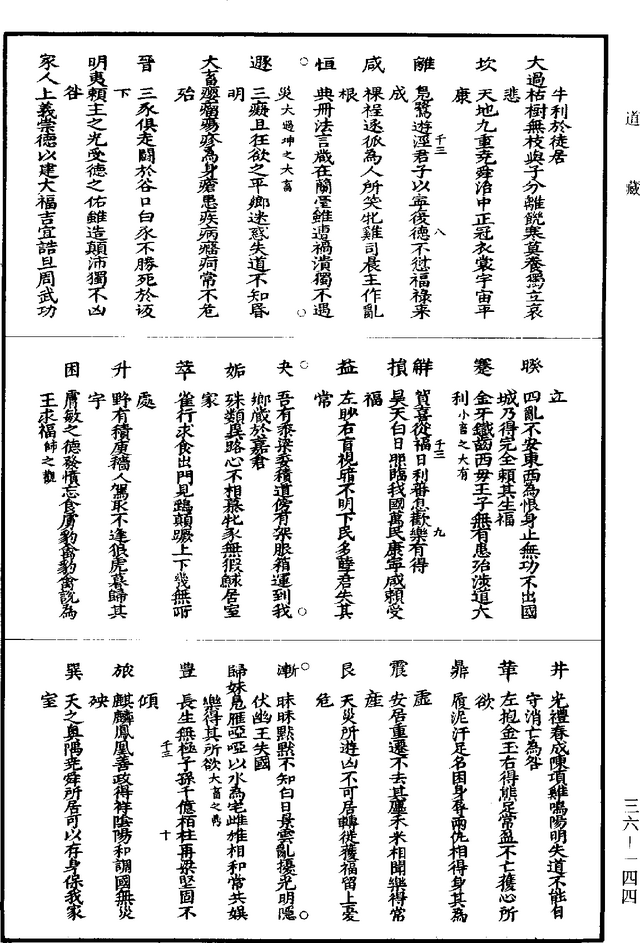 道藏
牛利於徒居
大過枯樹無枝與子分離飢寒莫養獨立哀
悲
坎　天地九重堯舜治中正冠衣裳宇宙平
康
離　鳧鷖遊涇君子以寧復德不愆福祿來
成
千三　八
咸　倮裎逐狐為人所笑牝雞司晨主作亂
根
恒　典冊法言藏在蘭臺雖遭禍潰獨不遇
災大過坤之大畜
遯　三癡且狂欲之平鄉迷惑失道不知昏
明
大畜癭瘤瘍疥為身瘡患疾病癃痾常不危
殆
晉　三豕俱走鬭於谷口白豕不勝死於坂
下
明夷賴主之光受德之佑雖造顛沛獨不凶
咎
家人上義崇德以建大福吉宜誥旦周武功
立
睽　四亂不安東西為恨身止無功不出國
城乃得完全賴其生福
蹇　金牙鐵齒西母王子無有患殆涉道大
利小畜之大有
解　賀喜從福日利蕃息歡樂有得
千三　九
損　昊天白日照臨我國萬民康寧咸賴受
福
益　左眇右盲視暗不明下民多孽君失其
常
夬　吾有黍粱委積道傍有架服箱運到我
鄉藏於嘉倉
姤　殊類異路心不相慕牝豕無猳鰥居室
家
萃　雀行求食出門見鷂顛蹶上下幾無所
處
升　野有積庾穡人駕取不逢狼虎暮歸其
宇
困　膚敏之德發憤忘食虜豹禽豹禽說為
王求福師之觀
井　光禮春成陳項雞鳴陽明失道不能自
守消亡為咎
革　左抱金玉右得熊足常盈不亡獲心所
欲
鼎　履泥汙足名困身辱兩仇相得身其為
虛
震　安居重遷不去其廛禾米相聞樂得常
產
艮　天災所遊凶不可居轉徙獲福留上憂
危
漸　昧昧黯黯不知白日景雲亂擾光明隱
伏幽王失國
歸妹鳧雁啞啞以水為宅雌雄相和常共娛
樂得其所欲大畜之离
豐　長生無極子孫千億栢柱再梁堅固不
傾
千三　十
旅　麒麟鳳凰善政得祥陰陽和調國無災
殃
巽　天之奥隅堯舜所居可以存身保我家
室
三六—一四四